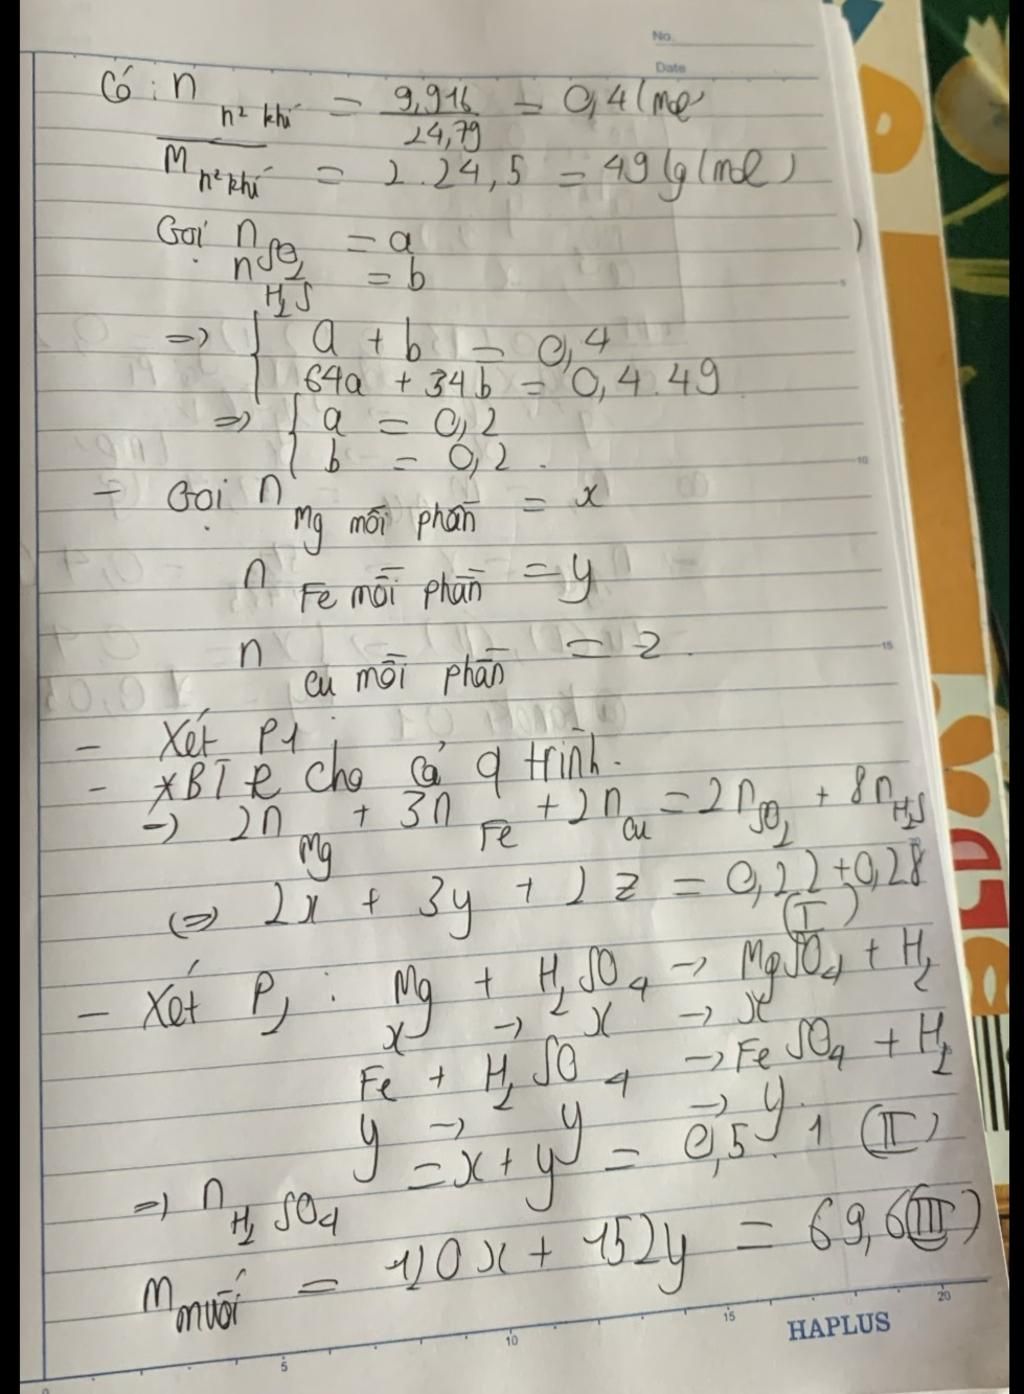 No.
Date
Có : n n² khí = 9,916 / 24,79 = 0,4 (mol
M n² khí = 2.24,5 = 49 (g/mol)
Gọi n SO2 = a
n H2S = b
=> { a + b = 0,4
64a + 34b = 0,4.49
=> { a = 0,2
b = 0,2.
- Gọi n Mg mỗi phần = x
n Fe mỗi phần = y
n Cu mỗi phần = z.
- Xét P1 :
- *BT e cho cả q trình.
-> 2n Mg + 3n Fe + 2n Cu = 2n SO2 + 8n H2S
<=> 2x + 3y + 2z = 0,2.2 + 0,2.8 (I)
- Xét P2 : Mg + H2SO4 -> MgSO4 + H2
x -> x -> x
Fe + H2SO4 -> FeSO4 + H2
y -> y -> y.
=> n H2SO4 = x + y = 0,5.1 (II)
m muối = 120x + 152y = 69,6 (III)
5 10 15 20
HAPLUS